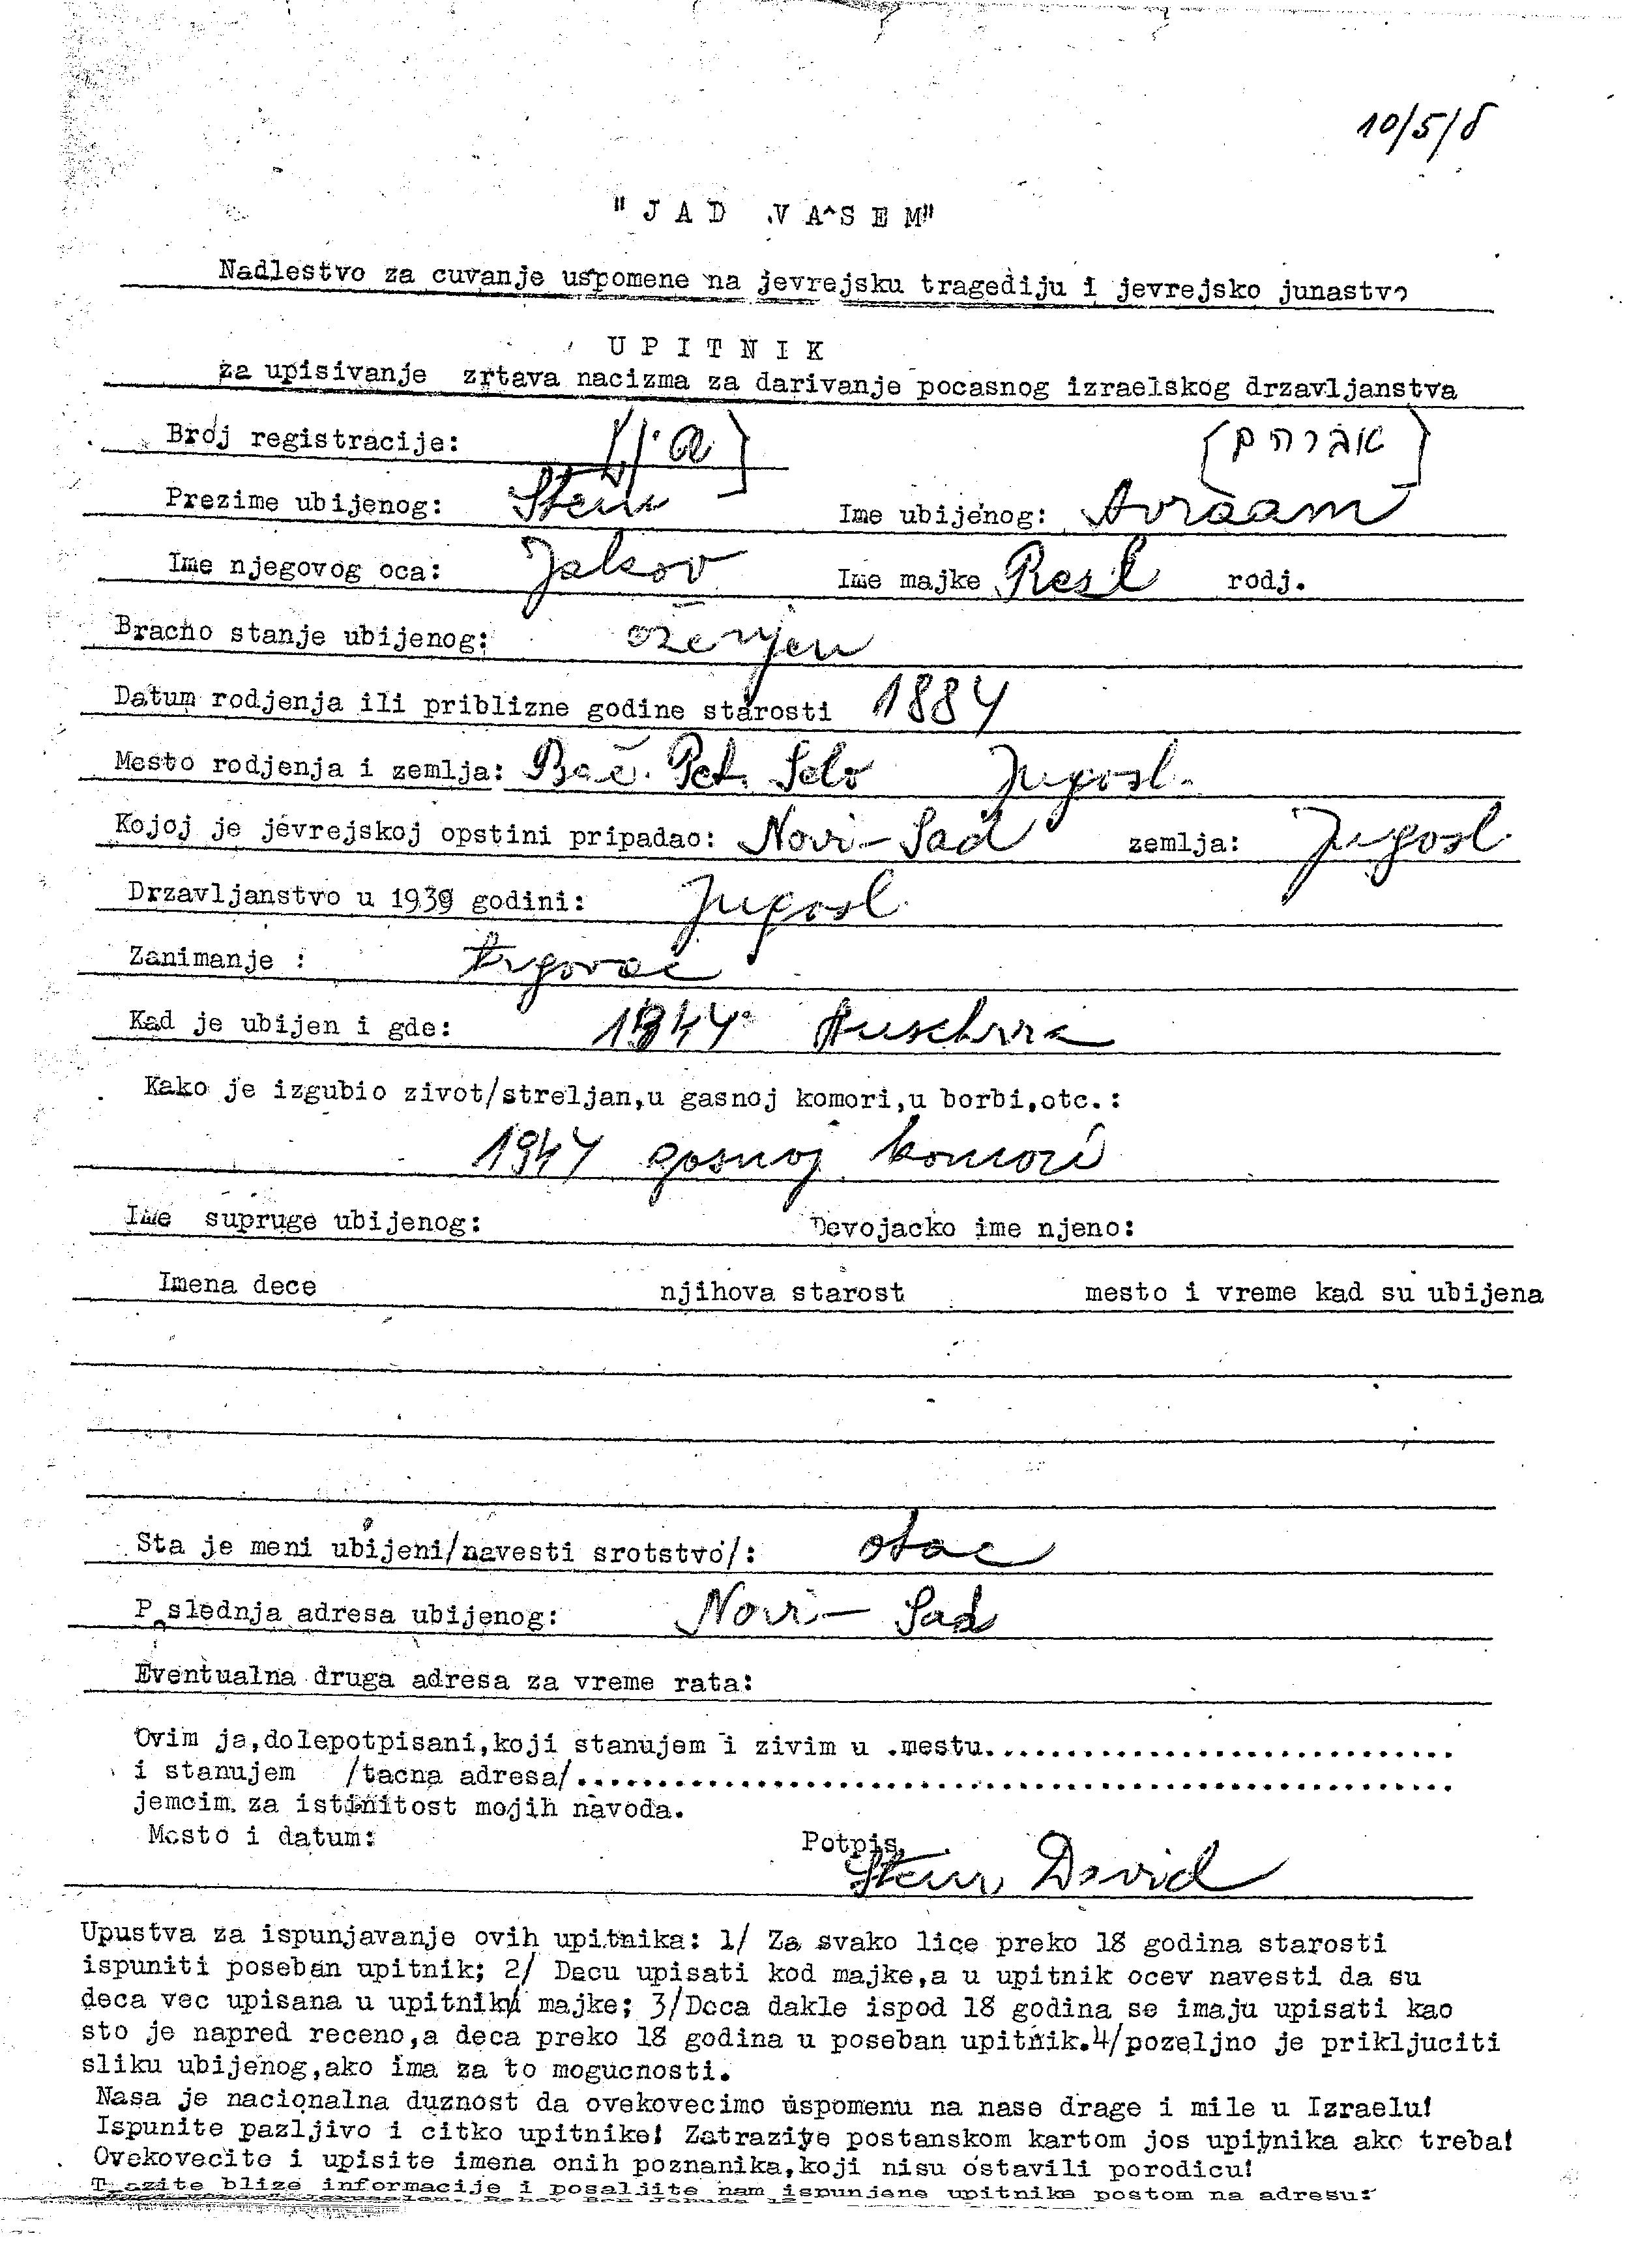 10/5/8
"JAD VA^SEM"
Nadlestvo za cuvanje uspomene na jevrejsku tragediju i jevrejsko junastvo
UPITNIK
za upisivanje zrtava nacizma za darivanje pocasnog izraelskog drzavljanstva
Broj registracije: [אברהם]
Prezime ubijenog: Stein Ime ubijenog: Avraam
Ime njegovog oca: Jakov Ime majke Resl rodj.
Bracno stanje ubijenog: oženjen
Datum rodjenja ili priblizne godine starosti 1884
Mesto rodjenja i zemlja: Bač. Pet. Selo Jugosl.
Kojoj je jevrejskoj opstini pripadao: Novi-Sad zemlja: Jugosl
Drzavljanstvo u 1939 godini: Jugosl.
Zanimanje : trgovac
Kad je ubijen i gde: 1944
Kako je izgubio zivot/streljan,u gasnoj komori,u borbi,otc.:
1944 gasnoj komori
Ime supruge ubijenog: Devojacko ime njeno:
Imena dece njihova starost mesto i vreme kad su ubijena
Sta je meni ubijeni/navesti srotstvo/: otac
P slednja adresa ubijenog: Novi-Sad
Eventualna druga adresa za vreme rata:
Ovim ja,dolepotpisani,koji stanujem i zivim u .mestu..............................
i stanujem /tacna adresa/..............................
jemcim za istinitost mojih navoda.
Mesto i datum: Potpis
Stein David
Upustva za ispunjavanje ovih upitnika: 1/ Za svako lice preko 18 godina starosti
ispuniti poseban upitnik; 2/ Decu upisati kod majke,a u upitnik ocev navesti da su
deca vec upisana u upitniku majke; 3/Deca dakle ispod 18 godina se imaju upisati kao
sto je napred receno,a deca preko 18 godina u poseban upitnik.4/pozeljno je prikljuciti
sliku ubijenog,ako ima za to mogucnosti.
Nasa je nacionalna duznost da ovekovecimo uspomenu na nase drage i mile u Izraelu!
Ispunite pazljivo i citko upitnike! Zatrazite postanskom kartom jos upitnika ako treba!
Ovekovecite i upisite imena onih poznanika,koji nisu ostavili porodicu!
Trazite blize informacije i posaljite nam ispunjene upitnike postom na adresu: